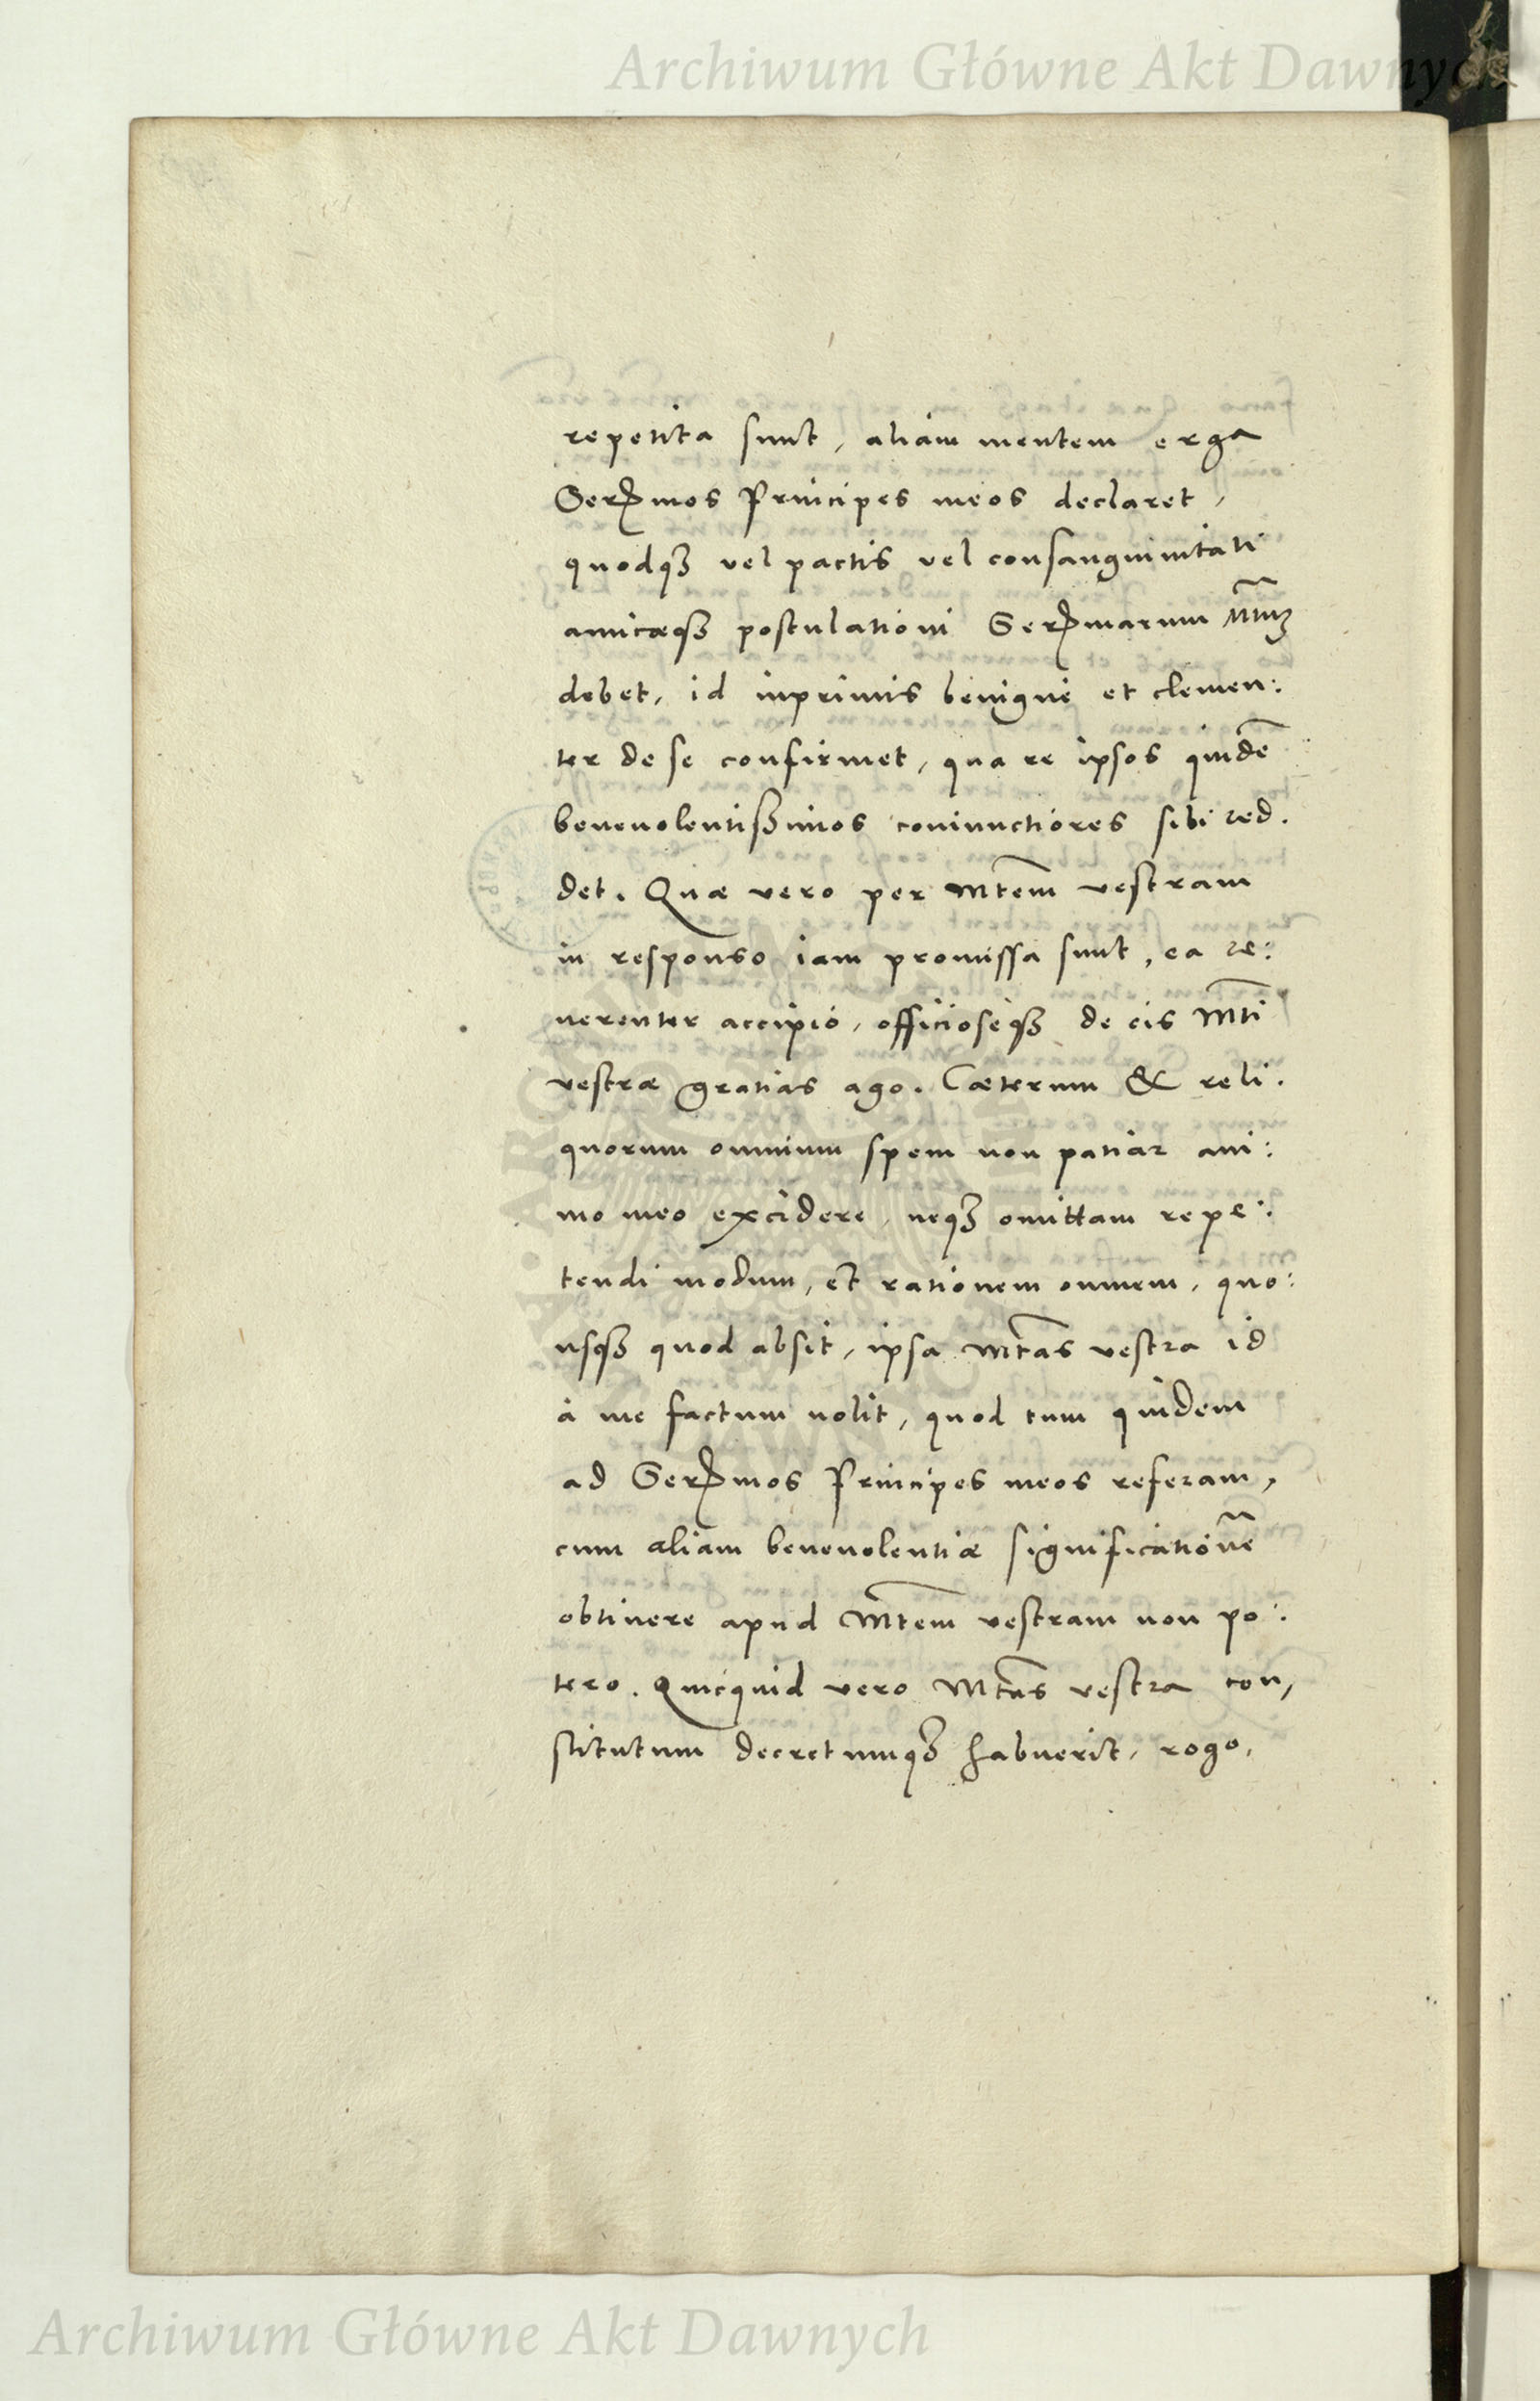 Archiwum Główne Akt Dawnych
repetita sunt, aliam mentem erga
Serᵐmos Principes meos declaret,
quodq₃ vel pactis vel consanguinitati
amicæq₃ postulationi Serᵐmarum
debet, id inprimis benigne et clemen:
ter de se confirmet, qua re ipsos quidē
benevolentißimos coniunctiores sibi red.
det. Quæ vero per Mtem vestram
in responso iam promissa sunt, ea re:
uerenter accipio, officioseq₃ de eis Mti
vestræ gratias ago. Cæterum & reli.
quorum omnium spem non patiar ani:
mo meo excidere, neq₃ omittam repe:
tendi modum, et rationem omnem, quo:
usq₃ quod absit, ipsa Mtas vestra id
à me factum nolit, quod tum quidem
ad Serᵐmos Principes meos referam,
cum aliam beneuolentiæ significationē
obtinere apud Mtem vestram non po:
tero. Quicquid vero Mtas vestra con,
stitutum decretumq₃ habuerit, rogo,
Archiwum Główne Akt Dawnych